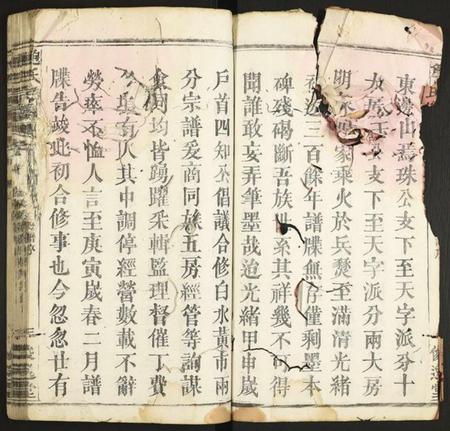 東邊山為珠公支下至天字派分十
支下至天字派分兩大房
明末家乘火於兵燹至滿清光緒
三百餘年譜牒無存僅剩墨本
碑殘碣斷吾族世系其祥幾不可得
聞誰敢妄弄筆墨哉迨光緒甲申歲
戶首四知公倡議合修白水黃市兩
分宗譜爰商同族五房經管等詢謀
僉同均皆踴躍采輯監理督催丁費
有人其中調停經營數載不辭
勞瘁不恤人言至庚寅歲春二月譜
牒告竣此初合修事也今忽忽廿有